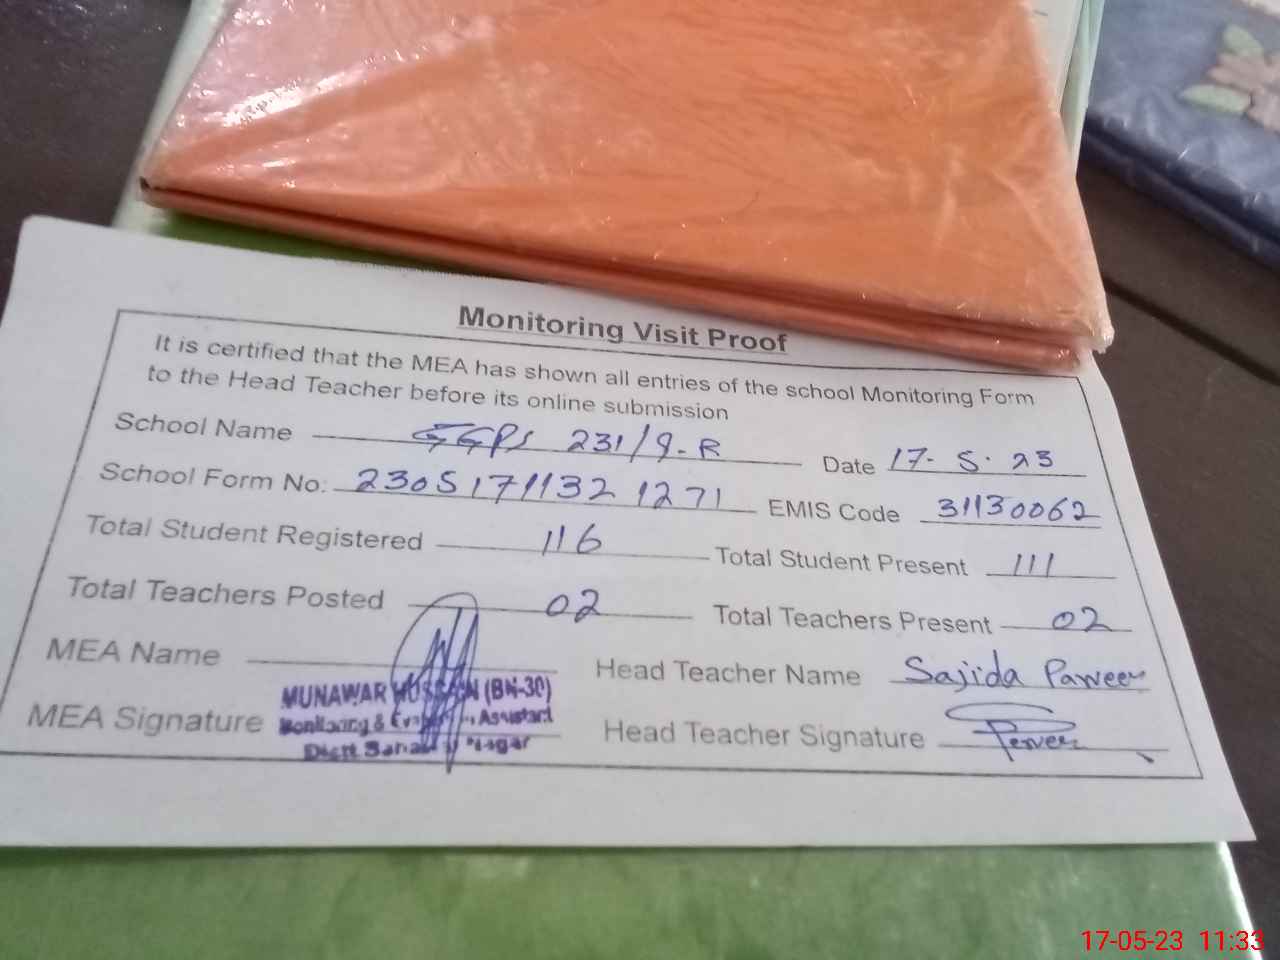 Monitoring Visit Proof
It is certified that the MEA has shown all entries of the school Monitoring Form
to the Head Teacher before its online submission
School Name GGPS 231/9-R Date 17-5-23
School Form No: 2305171132 1271 EMIS Code 31130062
Total Student Registered 116 Total Student Present 111
Total Teachers Posted 02 Total Teachers Present 02
MEA Name Head Teacher Name Sajida Parveen
MUNAWAR HUSSAIN (BN-30)
Monitoring & Assistant
MEA Signature Head Teacher Signature Perveen
Distt
17-05-23 11:33